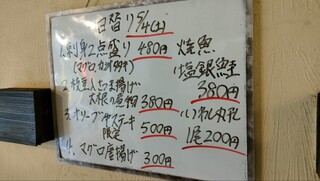 日替り 5/4(土)
1. 刺身2点盛り 480円
(マグロ カツオ
2. 枝豆入さつま揚げ
大根の煮物 380円
3. オリーブ牛ステーキ
限定 500円
4. マグロ唐揚げ
300円
焼魚
塩銀鮭
380円
いわし丸干し
1尾200円